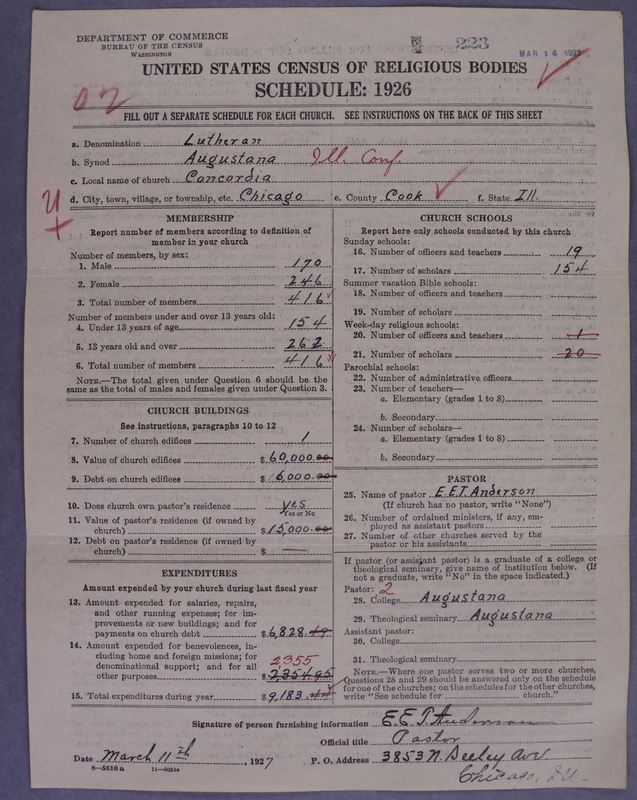 DEPARTMENT OF COMMERCE
BUREAU OF THE CENSUS
WASHINGTON
223
MAR 14 1927
UNITED STATES CENSUS OF RELIGIOUS BODIES
SCHEDULE: 1926
FILL OUT A SEPARATE SCHEDULE FOR EACH CHURCH. SEE INSTRUCTIONS ON THE BACK OF THIS SHEET
a. Denomination Lutheran
b. Synod Augustana Ill. Conf.
c. Local name of church Concordia
d. City, town, village, or township, etc. Chicago e. County Cook f. State Ill.
MEMBERSHIP
Report number of members according to definition of
member in your church
Number of members, by sex:
1. Male 170
2. Female 246
3. Total number of members 416
Number of members under and over 13 years old:
4. Under 13 years of age 154
5. 13 years old and over 262
6. Total number of members 416
NOTE.—The total given under Question 6 should be the
same as the total of males and females given under Question 3.
CHURCH BUILDINGS
See instructions, paragraphs 10 to 12
7. Number of church edifices 1
8. Value of church edifices $60,000.00
9. Debt on church edifices $6,000.00
10. Does church own pastor's residence yes
Yes or No
11. Value of pastor's residence (if owned by
church) $15,000.00
12. Debt on pastor's residence (if owned by
church) $ —
EXPENDITURES
Amount expended by your church during last fiscal year
13. Amount expended for salaries, repairs,
and other running expenses; for im-
provements or new buildings; and for
payments on church debt $6,828.49
14. Amount expended for benevolences, in-
cluding home and foreign missions; for
denominational support; and for all 2355
other purposes $2354.95
15. Total expenditures during year $9,183.44
CHURCH SCHOOLS
Report here only schools conducted by this church
Sunday schools:
16. Number of officers and teachers 19
17. Number of scholars 154
Summer vacation Bible schools:
18. Number of officers and teachers
19. Number of scholars
Week-day religious schools:
20. Number of officers and teachers 1
21. Number of scholars 20
Parochial schools:
22. Number of administrative officers
23. Number of teachers—
a. Elementary (grades 1 to 8)
b. Secondary
24. Number of scholars—
a. Elementary (grades 1 to 8)
b. Secondary
PASTOR
25. Name of pastor E.E.T. Anderson
(If church has no pastor, write "None")
26. Number of ordained ministers, if any, em-
ployed as assistant pastors
27. Number of other churches served by the
pastor or his assistants
If pastor (or assistant pastor) is a graduate of a college or
theological seminary, give name of institution below. (If
not a graduate, write "No" in the space indicated.)
Pastor: 2
28. College Augustana
29. Theological seminary Augustana
Assistant pastor:
30. College
31. Theological seminary
NOTE.—Where one pastor serves two or more churches,
Questions 28 and 29 should be answered only on the schedule
for one of the churches; on the schedules for the other churches,
write "See schedule for church."
Signature of person furnishing information E.E.T. Anderson
Official title Pastor
Date March 11th, 1927 P. O. Address 3853 N. Seeley Ave
Chicago, Ill.
8—5518a 11—9051a